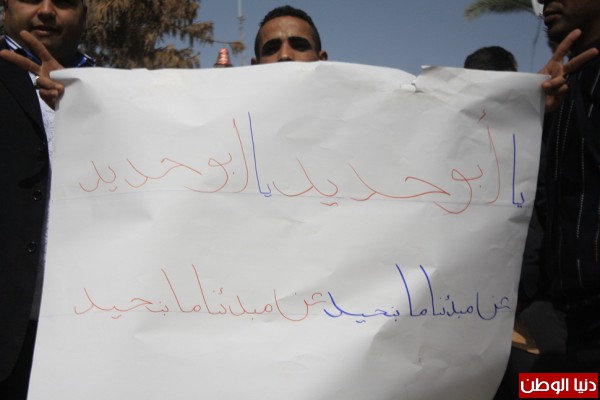 يا أبو حديد يا ابو حديد
عن مبدئنا ما بنحيد عن مبدئنا ما بنحيد
دنيا الوطن